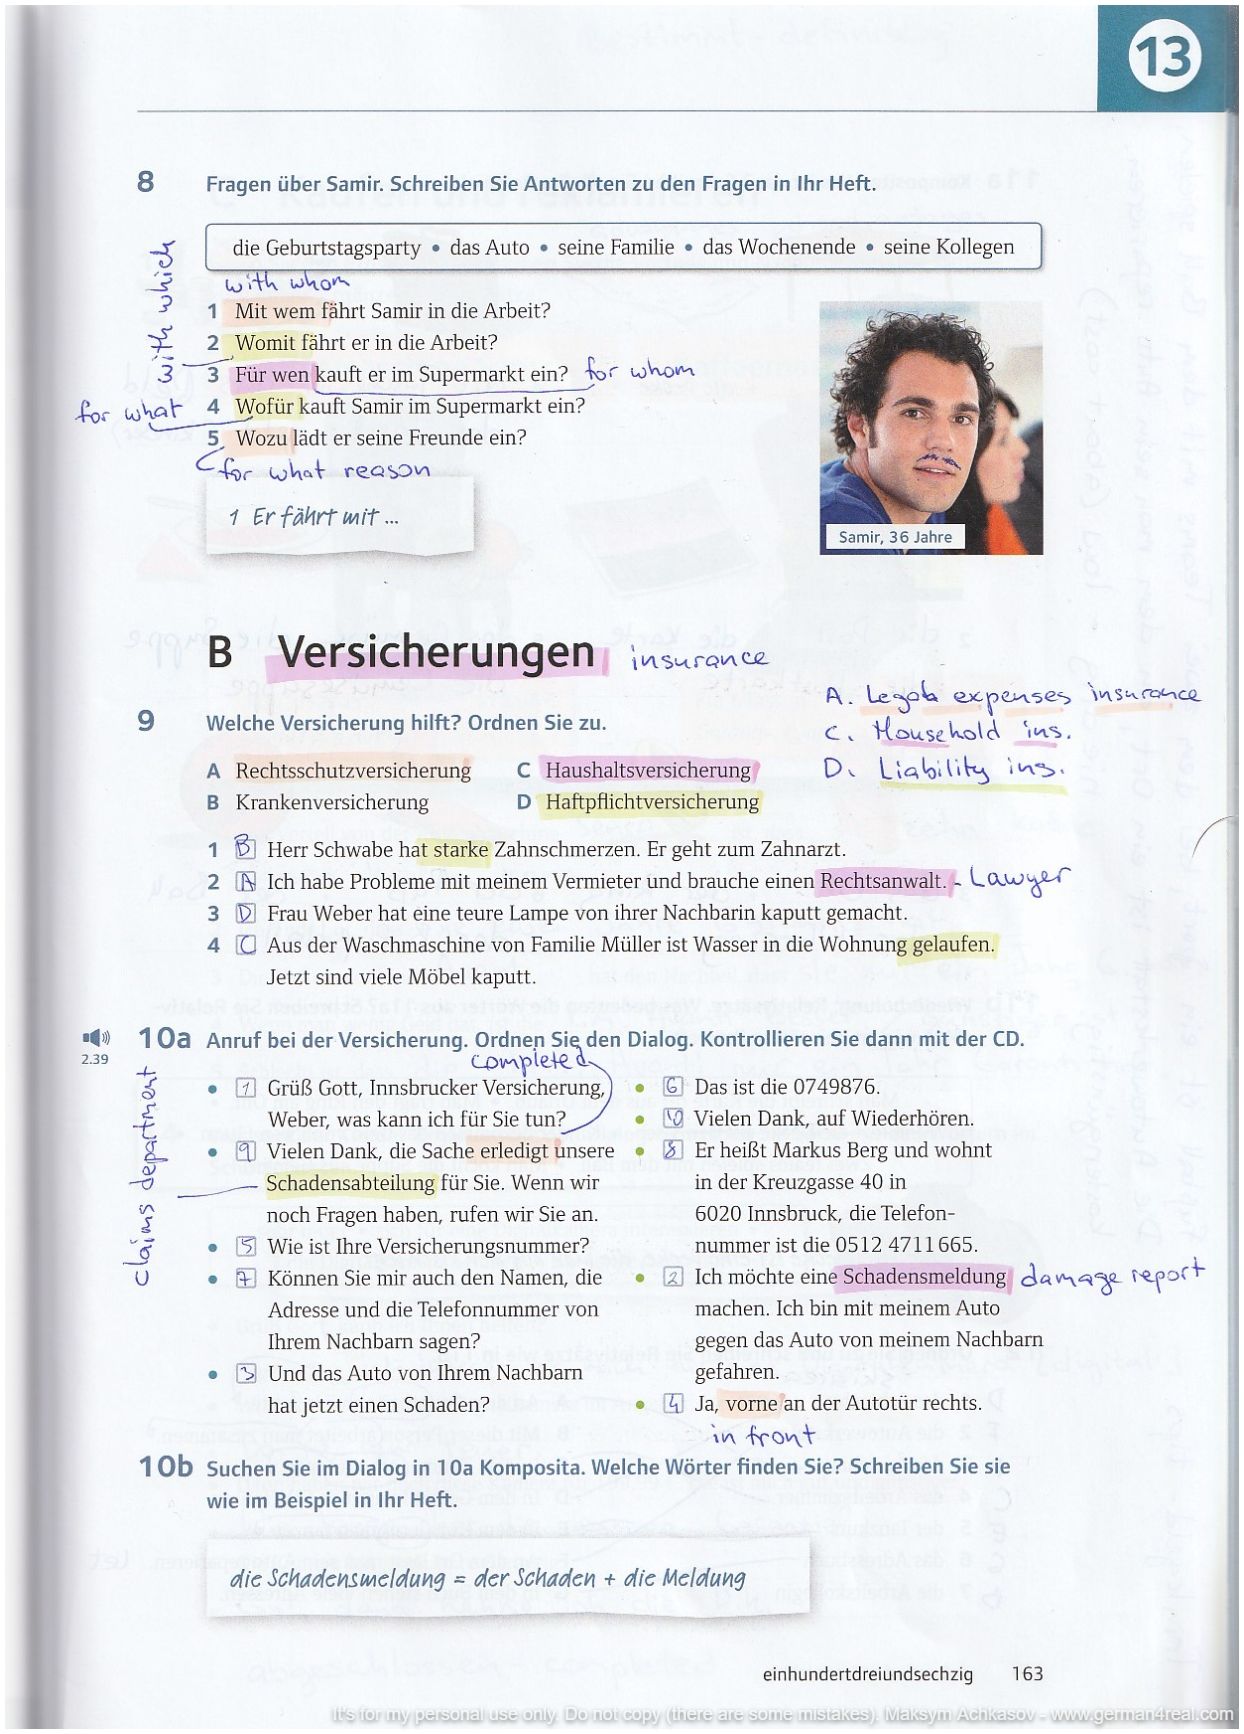 13
8 Fragen über Samir. Schreiben Sie Antworten zu den Fragen in Ihr Heft.
die Geburtstagsparty • das Auto • seine Familie • das Wochenende • seine Kollegen
with which
with whom
1 Mit wem fährt Samir in die Arbeit?
2 Womit fährt er in die Arbeit?
3 Für wen kauft er im Supermarkt ein? for whom
for what 4 Wofür kauft Samir im Supermarkt ein?
5 Wozu lädt er seine Freunde ein?
for what reason
1 Er fährt mit ...
Samir, 36 Jahre
B Versicherungen insurance
A. Legal expenses insurance
C. Household ins.
D. Liability ins.
9 Welche Versicherung hilft? Ordnen Sie zu.
A Rechtsschutzversicherung C Haushaltsversicherung
B Krankenversicherung D Haftpflichtversicherung
1 B Herr Schwabe hat starke Zahnschmerzen. Er geht zum Zahnarzt.
2 A Ich habe Probleme mit meinem Vermieter und brauche einen Rechtsanwalt. - Lawyer
3 D Frau Weber hat eine teure Lampe von ihrer Nachbarin kaputt gemacht.
4 C Aus der Waschmaschine von Familie Müller ist Wasser in die Wohnung gelaufen.
Jetzt sind viele Möbel kaputt.
2.39
10a Anruf bei der Versicherung. Ordnen Sie den Dialog. Kontrollieren Sie dann mit der CD.
completed
claims department
• 1 Grüß Gott, Innsbrucker Versicherung,
Weber, was kann ich für Sie tun?
• 9 Vielen Dank, die Sache erledigt unsere
Schadensabteilung für Sie. Wenn wir
noch Fragen haben, rufen wir Sie an.
• 5 Wie ist Ihre Versicherungsnummer?
• 7 Können Sie mir auch den Namen, die
Adresse und die Telefonnummer von
Ihrem Nachbarn sagen?
• 3 Und das Auto von Ihrem Nachbarn
hat jetzt einen Schaden?
• 6 Das ist die 0749876.
• 10 Vielen Dank, auf Wiederhören.
• 8 Er heißt Markus Berg und wohnt
in der Kreuzgasse 40 in
6020 Innsbruck, die Telefon-
nummer ist die 0512 4711665.
• 2 Ich möchte eine Schadensmeldung damage report
machen. Ich bin mit meinem Auto
gegen das Auto von meinem Nachbarn
gefahren.
• 4 Ja, vorne an der Autotür rechts.
in front
10b Suchen Sie im Dialog in 10a Komposita. Welche Wörter finden Sie? Schreiben Sie sie
wie im Beispiel in Ihr Heft.
die Schadensmeldung = der Schaden + die Meldung
einhundertdreiundsechzig 163
It's for my personal use only. Do not copy (there are some mistakes). Maksym Achkasov - www.german4real.com